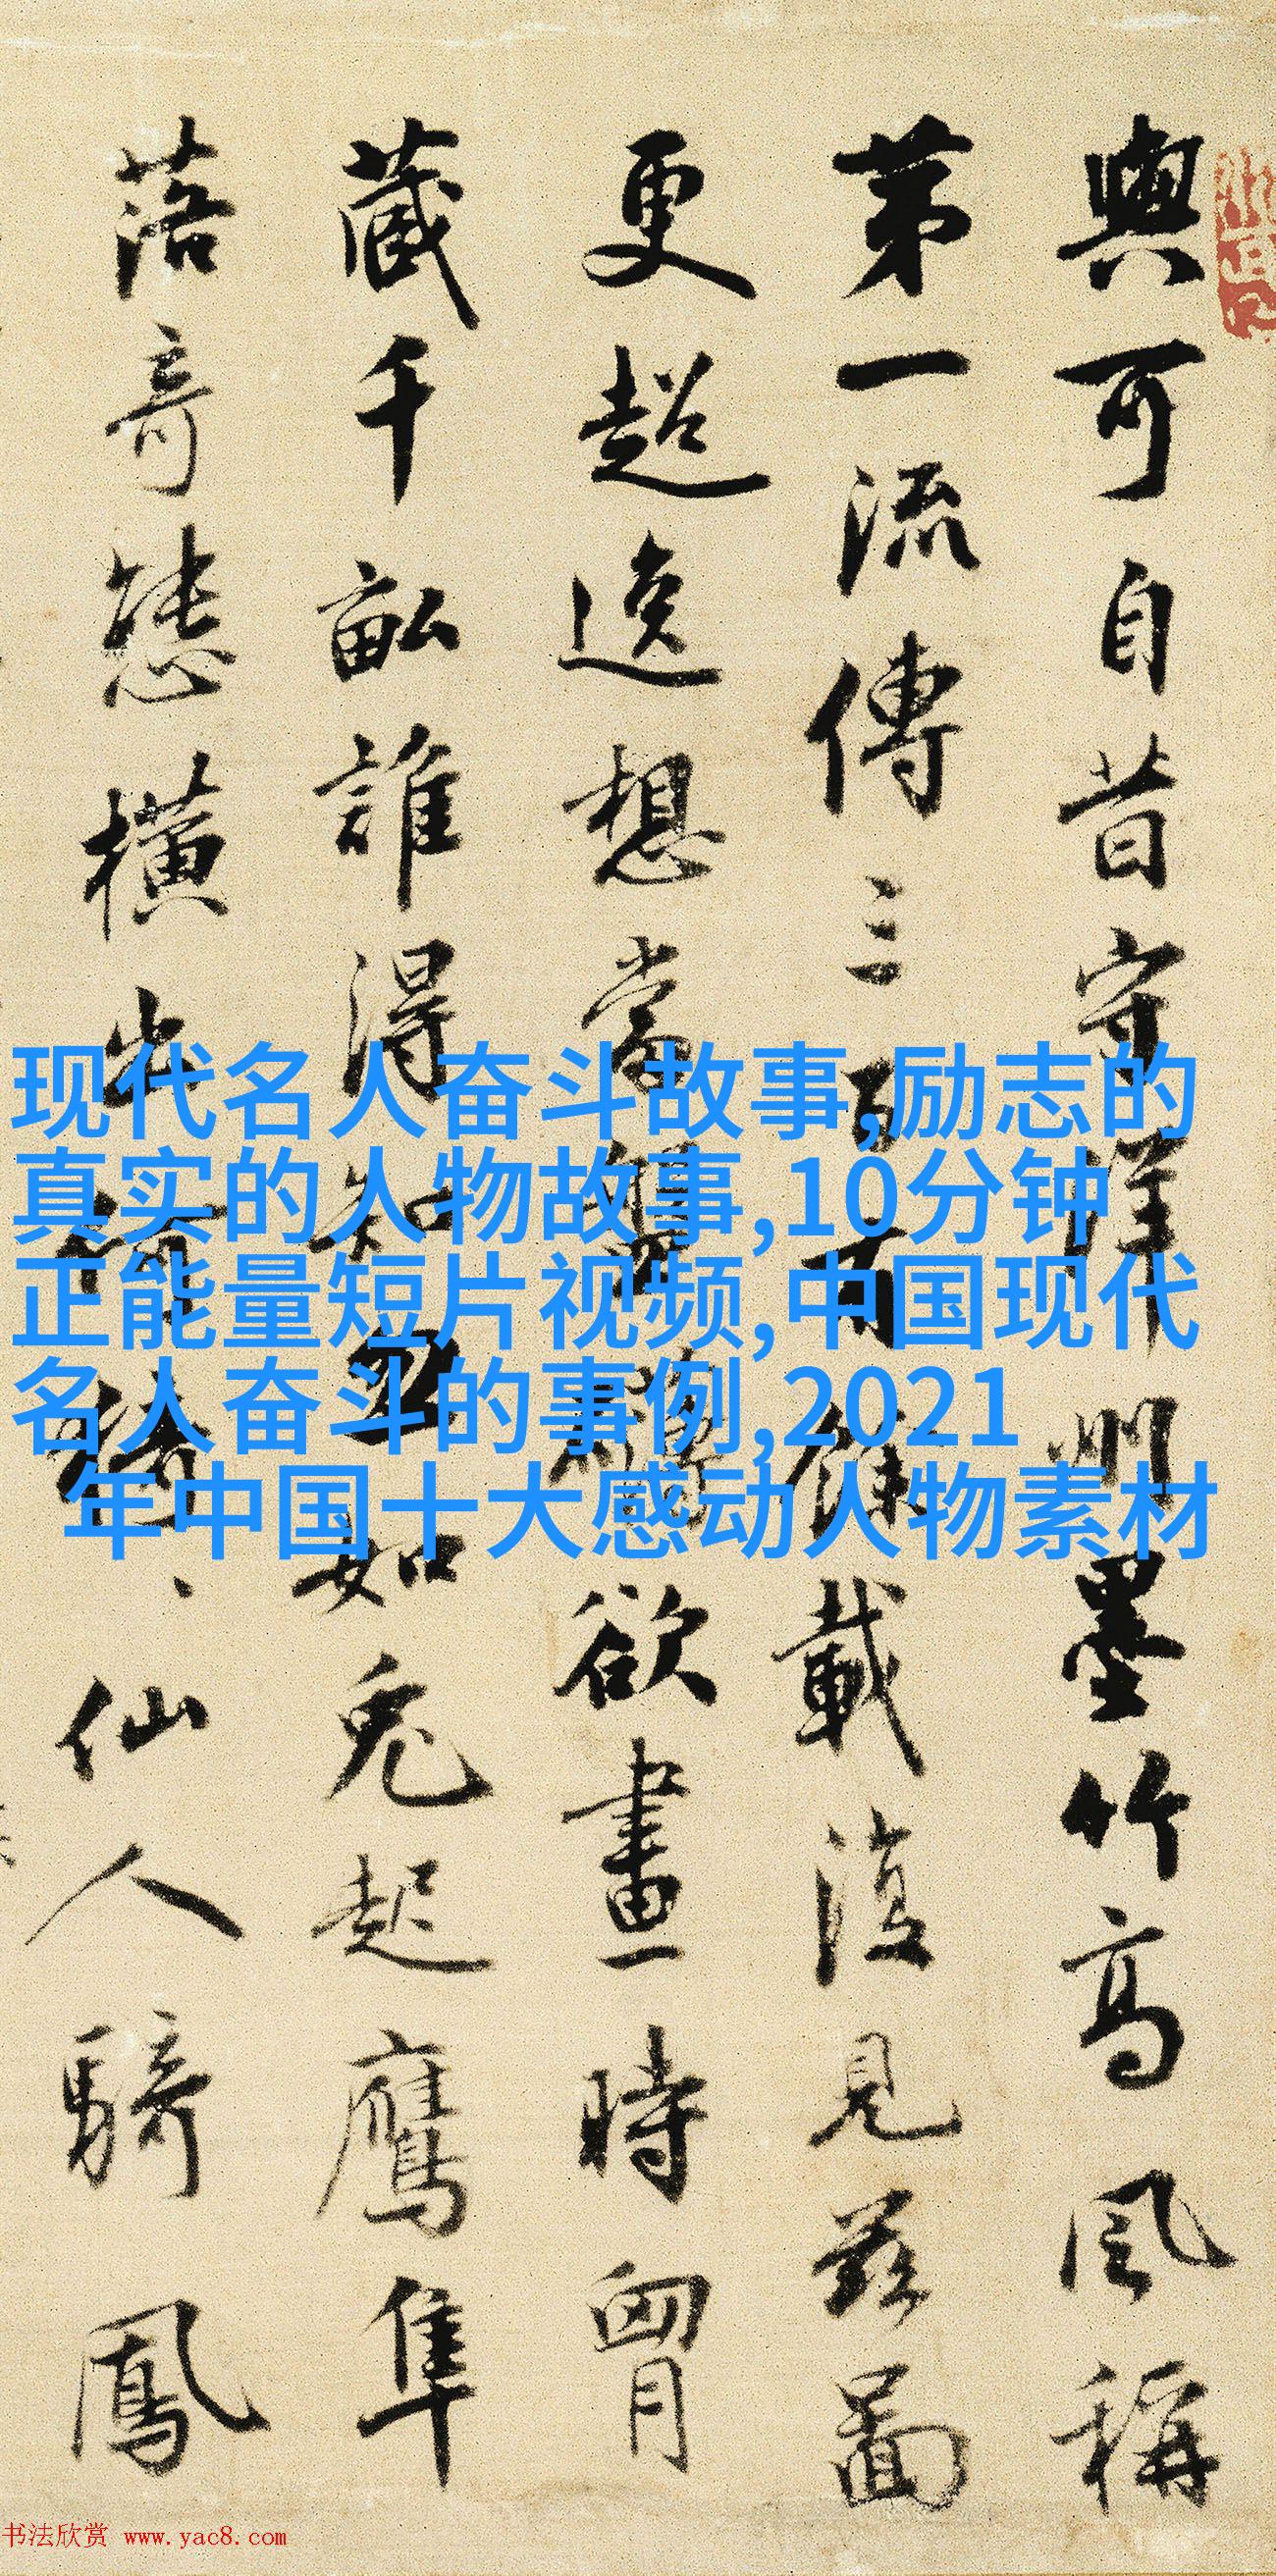 與可自昔守洋州墨竹高風稱
第一流傳三百有餘載復見茲圖
更超逸想當盤礴欲畫時胷
藏千畝誰得知忽如兔起鷹隼
落奇態橫出
仙人騎鳳
现代名人奋斗故事,励志的
真实的人物故事,10分钟
正能量短片视频,中国现代
名人奋斗的事例,2021
年中国十大感动人物素材
书法欣赏 www.yac8.com